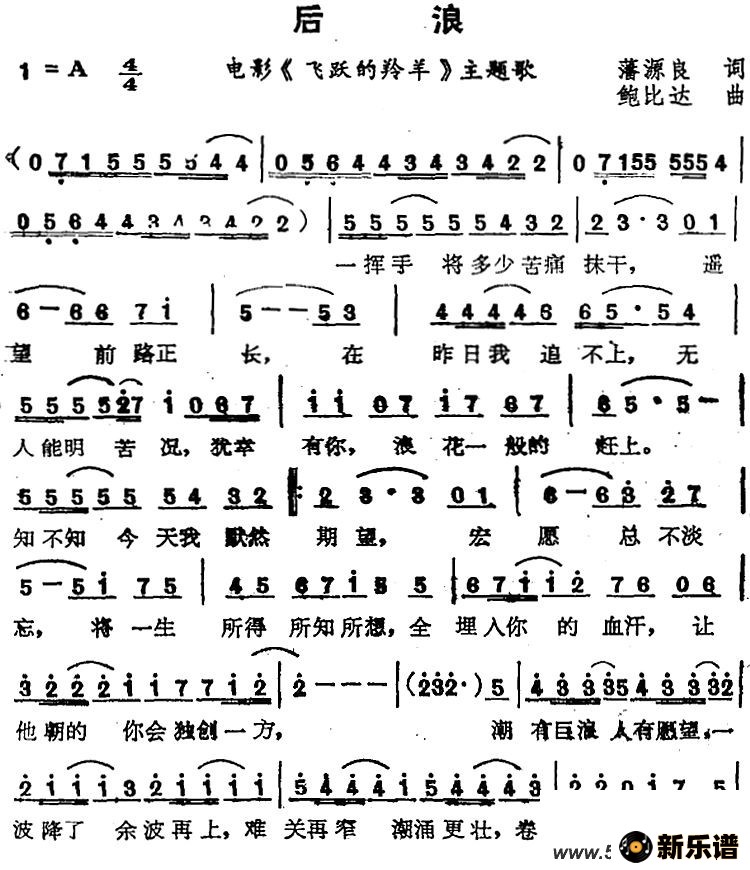 后 浪
1 = A 4/4 电影《飞跃的羚羊》主题歌 藩源良 词
鲍比达 曲
(0 7 1 5 5 5 5 5 4 4 | 0 5 6 4 4 3 4 3 4 2 2 | 0 7 1 5 5 5 5 5 4
0 5 6 4 4 3 4 3 4 2 2) | 5 5 5 5 5 5 4 3 2 | 2 3 · 3 0 1
一挥手 将多少苦痛 抹干， 遥
6 — 6 6 7 i | 5 — — 5 3 | 4 4 4 4 4 6 6 5 · 5 4
望 前路正 长， 在 昨日我 追 不上，无
5 5 5 5 5 2 7 i 0 6 7 | i i 0 7 i 7 6 7 | 6 5 · 5 —
人能明 苦 况，犹幸 有你， 浪 花一般的 赶上。
5 5 5 5 5 5 5 4 3 2 |: 2 3 · 3 0 1 | 6 — 6 3 2 7
知不知 今 天我 默然 期望， 宏 愿 总不淡
5 — 5 i 7 5 | 4 5 6 7 i 5 5 | 6 7 i i 2 7 6 0 6
忘， 将一生 所得 所知所想，全 埋入你 的 血汗，让
3 2 2 2 i i 7 7 i 2 | 2 — — — | (2 3 2 ·) 5 | 4 3 3 3 5 4 3 3 3 2
他朝的 你会独创一方， 潮 有巨浪 人有愿望，一
2 i i i 3 2 i i i i | 5 4 4 4 i 5 4 4 4 5 | 2 2 0 i 7 5
波降了 余波再上，难 关再窄 潮涌更壮，卷
www.5
新乐谱